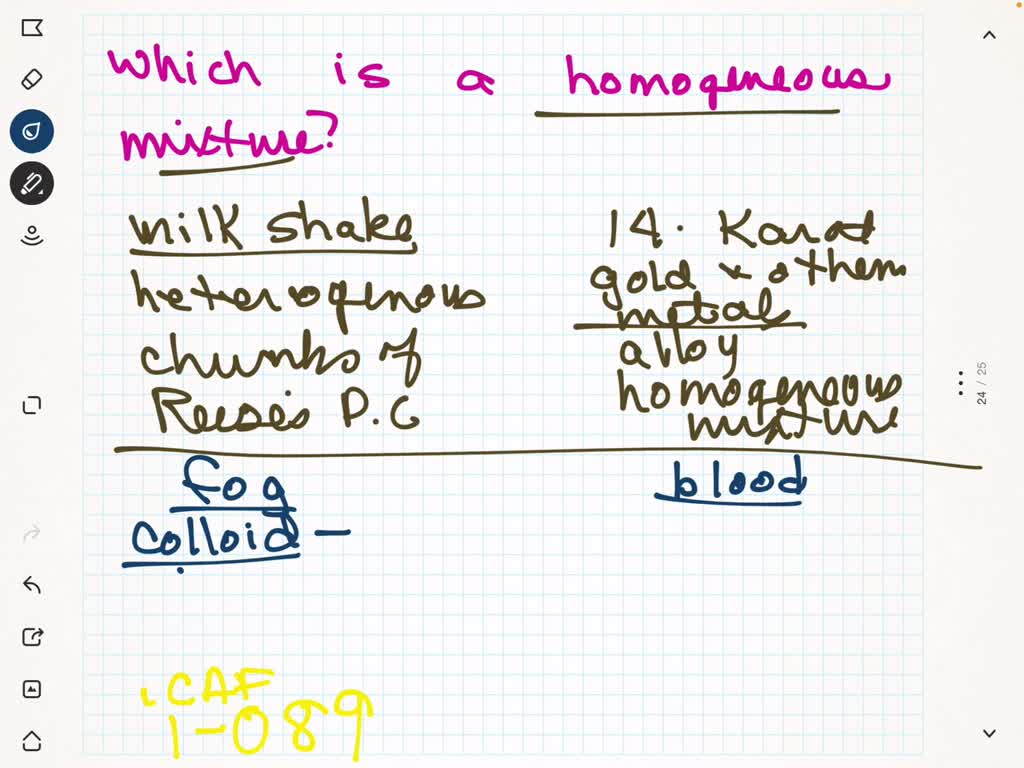 which is a homogeneous
mixture?
milk shake
heterogenous
chunks of
Reese's P.C
14. Karat
gold & other
metals
alloy
homogeneous
mixture
fog
colloid —
blood
CAF
1-089
24 / 25